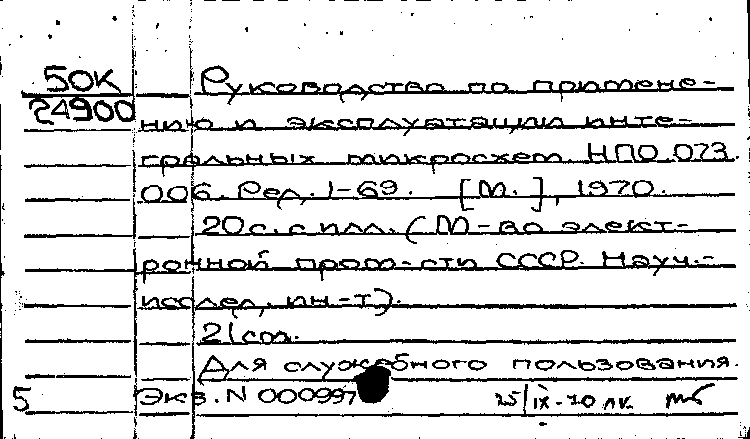 50К
24900
Руководство по примене-
нию и эксплуатации инте-
гральных микросхем НПО.073.
006. Ред. 1-69. [М.], 1970.
20 с. с илл. (М-во элект-
ронной пром-сти СССР. Науч.-
исслед. ин-т).
21 см.
Для служебного пользования.
5 Экз. N 000997
25/IX-70